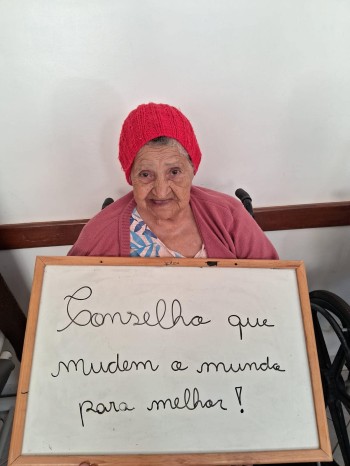 Conselho que
mudem o mundo
para melhor!